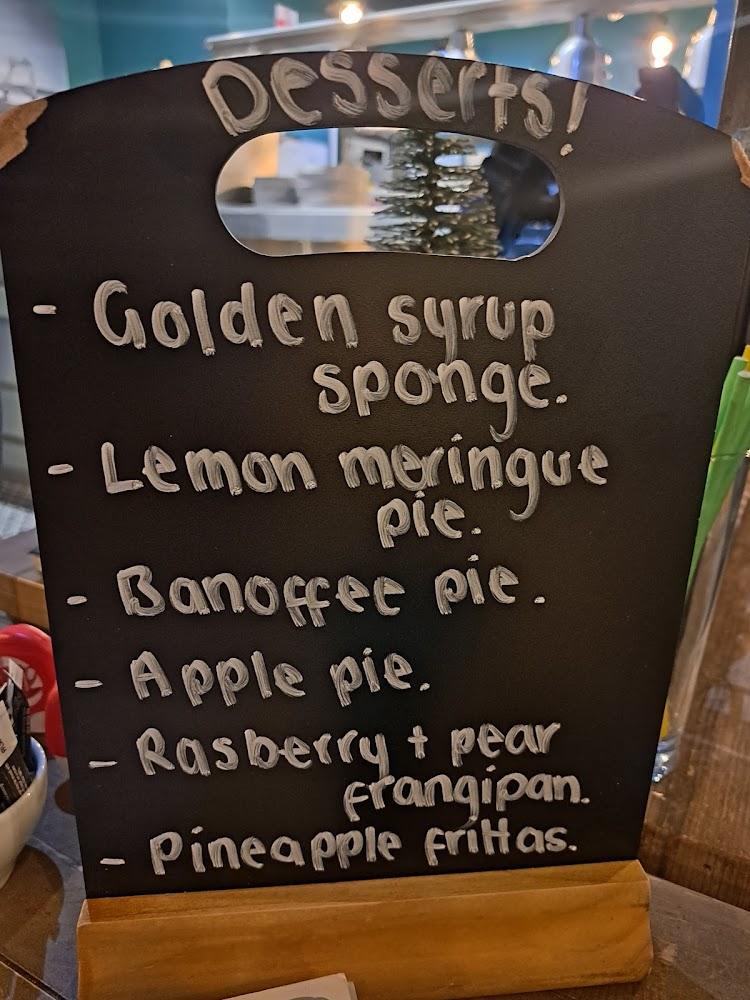 Desserts!
- Golden syrup
sponge.
- Lemon meringue
pie.
- Banoffee pie.
- Apple pie.
- Rasberry + pear
frangipan.
- Pineapple frittas.